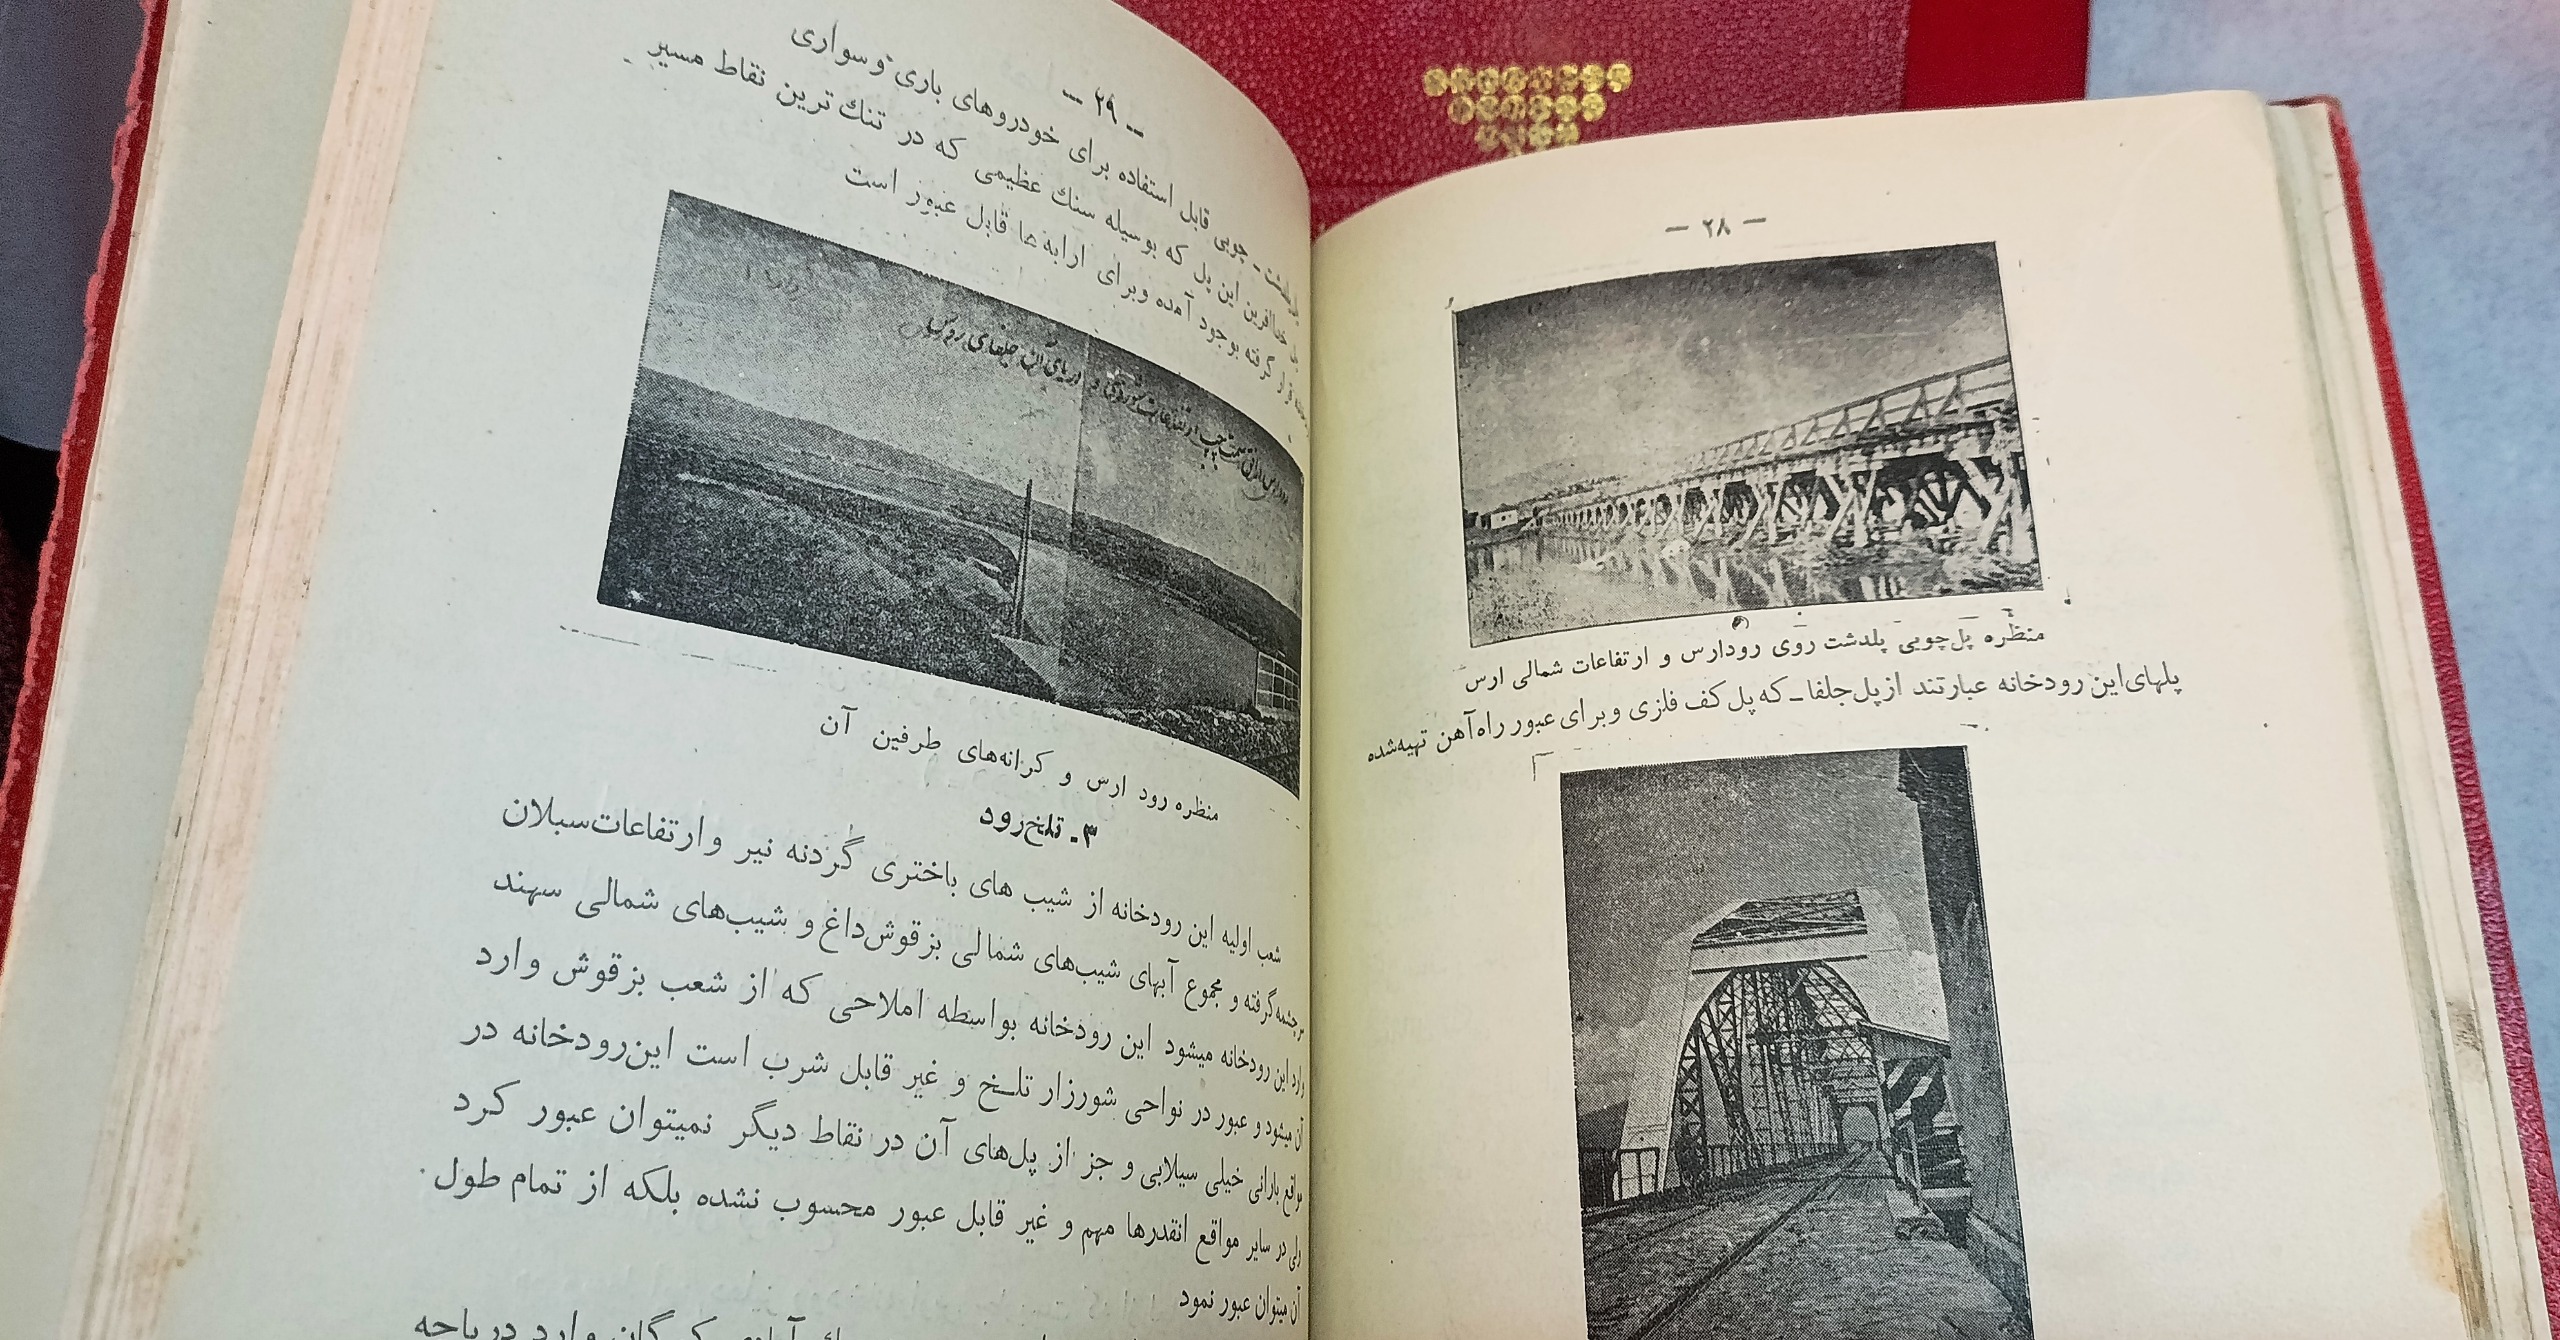 — ۲۸ —
منظره پل‌چوبی پلدشت روی رودارس و ارتفاعات شمالی ارس
پلهای‌این رودخانه عبارتند ازپل‌جلفا ـ که پل کف فلزی وبرای عبور راه‌آهن تهیه‌شده
— ۲۹ —
چوبی قابل استفاده برای خودروهای باری و سواری
خداآفرین این پل که بوسیله سنك عظیمی که در تنك ترین نقاط مسیر
گرفته بوجود آمده وبرای ارابه‌ها قابل عبور است
منظره رود ارس و کرانه‌های طرفین آن
۳ـ تلخ‌رود
شعب اولیه این رودخانه از شیب های باختری گردنه نیر وارتفاعات‌سبلان
سرچشمه‌گرفته و مجموع آبهای شیب‌های شمالی بزقوش‌داغ و شیب‌های شمالی سهند
وارد این رودخانه میشود این رودخانه بواسطه املاحی که از شعب بزقوش وارد
آن میشود و عبور در نواحی شورزار تلـخ و غیر قابل شرب است این‌رودخانه در
مواقع بارانی خیلی سیلابی و جز از پل‌های آن در نقاط دیگر نمیتوان عبور کرد
ولی در سایر مواقع انقدرها مهم و غیر قابل عبور محسوب نشده بلکه از تمام طول
آن میتوان عبور نمود
وارد دریاچه